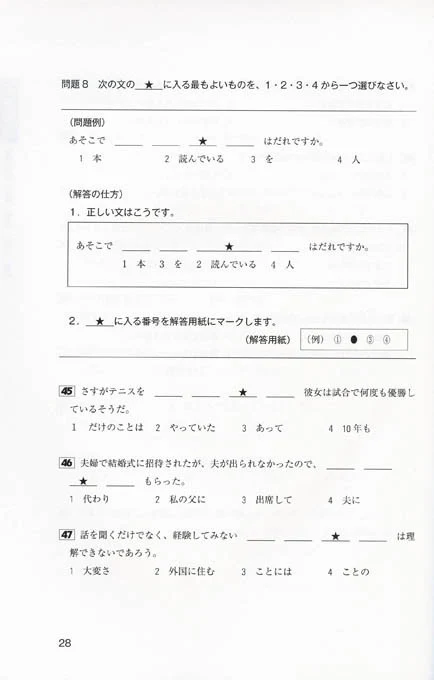 問題8 次の文の ★ に入る最もよいものを、1・2・3・4から一つ選びなさい。
(問題例)
あそこで ____ ____ ★ ____ はだれですか。
1 本 2 読んでいる 3 を 4 人
(解答の仕方)
1．正しい文はこうです。
あそこで ____ ____ ★ ____ はだれですか。
1 本 3 を 2 読んでいる 4 人
2． ★ に入る番号を解答用紙にマークします。
(解答用紙) (例) ① ● ③ ④
45 さすがテニスを ____ ____ ★ ____ 彼女は試合で何度も優勝し
ているそうだ。
1 だけのことは 2 やっていた 3 あって 4 10年も
46 夫婦で結婚式に招待されたが、夫が出られなかったので、 ____ ____
★ ____ もらった。
1 代わり 2 私の父に 3 出席して 4 夫に
47 話を聞くだけでなく、経験してみない ____ ____ ★ ____ は理
解できないであろう。
1 大変さ 2 外国に住む 3 ことには 4 ことの
28